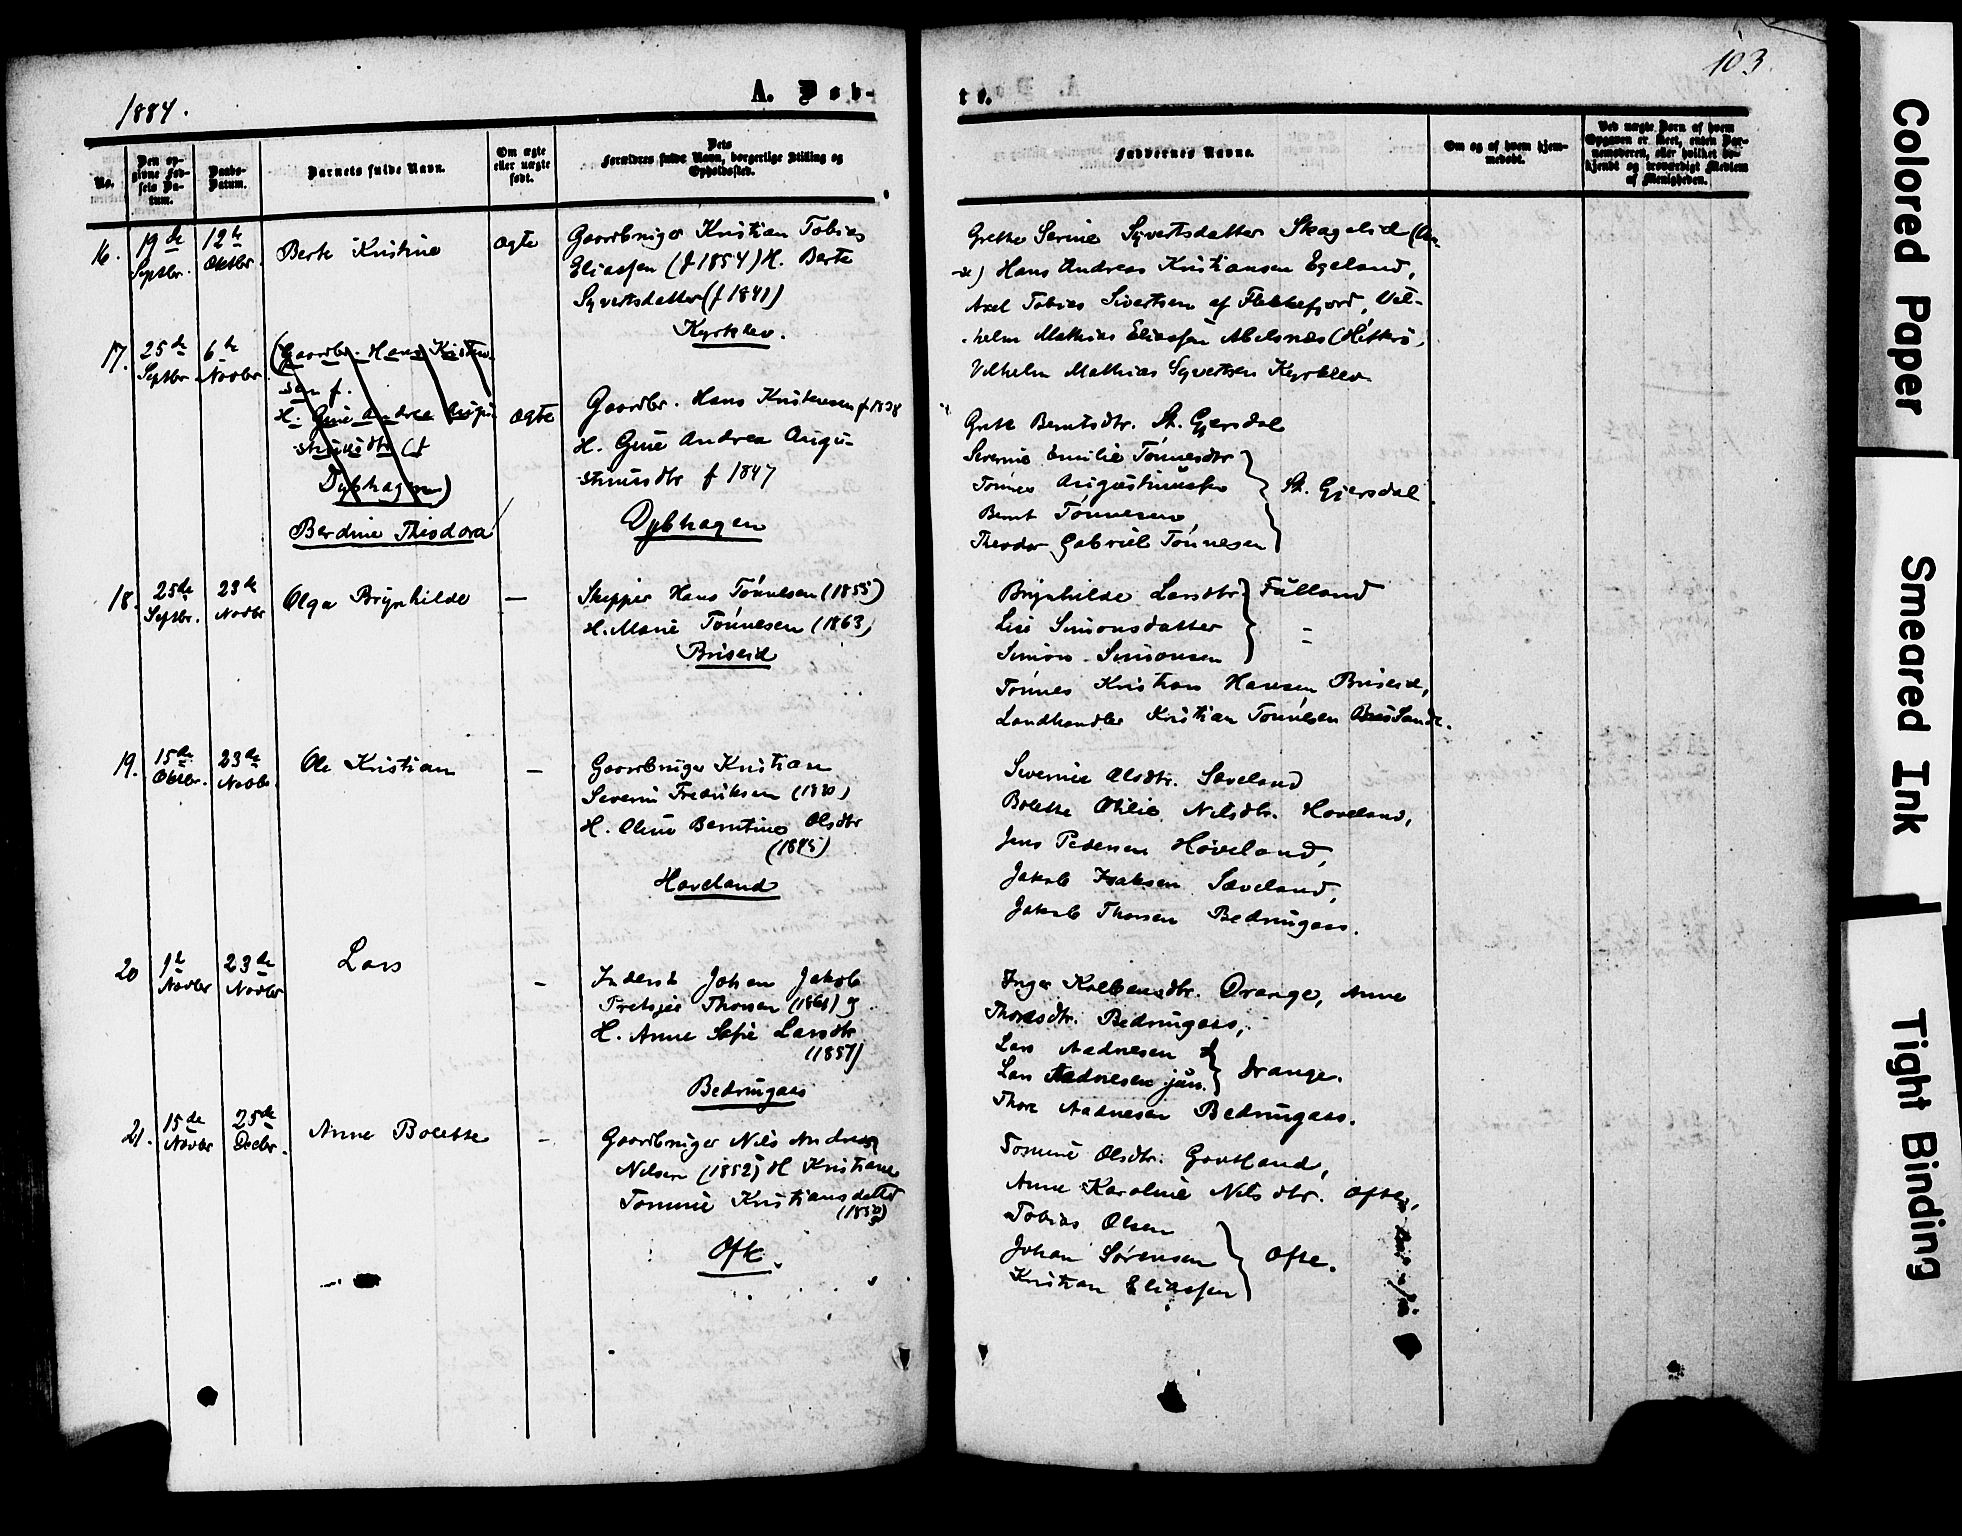 1884.
A. Døb-
te.
103.
No.
Den op-
givne Fød-
sels Da-
tum.
Daabs-
Datum.
Barnets fulde Navn.
Om ægte
eller uægte
født.
Dets
Forældres fulde Navn, borgerlige Stilling og
Opholdssted.
Faddernes Navne.
Om og af hvem hjem-
medøbt.
Ved uægte Børn af hvem
Opgaven er skeet, enten Bar-
nemoderen, eller hvilket be-
kjendt og troværdigt Medlem
af Menigheden.
16.
19de
Septbr.
12te
Oktbr.
Berte Kristine
ægte
Gaardbruger Kristian Tobias
Eliassen (f 1854) H. Berte
Syvertsdatter (f 1841)
Kyrklev.
Grethe Serine Syvertsdatter Skagelid
Hans Andreas Kristiansen Egeland,
Axel Tobias Sivertsen af Flekkefjord, Vil-
helm Mathias Eliassen Abelsnæs (Hitterø,
Vilhelm Mathias Syvertsen Kyrklev
17.
25de
Septbr
6te
Novbr.
(Gaardbr. Hans Kristen-
sen f.
H. Gine Andrea Augu-
stinusdtr (f
Dybhagen)
Berdine Theodora
ægte
Gaardbr. Hans Kristensen f 1838
H. Gine Andrea Augu-
stinusdtr f 1847
Dybhagen
Grete Berntsdtr. St. Gjersdal
Severine Emilie Tønnesdtr
Tønnes Augustinussen
St. Gjersdal.
Bernt Tønnesen
Theodor Gabriel Tønnesen
18.
25de
Septbr.
23de
Novbr
Olga Brynhilde
—
Skipper Hans Tønnesen (1855)
H. Marie Tønnesen (1863)
Briseid
Brynhilde Larsdtr
Fulland
Lise Simonsdatter
Simon Simonsen
Tønnes Kristian Hansen Briseid,
Landhandler Kristian Tønnesen
19.
15de
Oktbr.
23de
Novbr.
Ole Kristian
—
Gaardbruger Kristian
Severin Fredriksen (1840)
H. Oline Berntine Olsdtr
(1845)
Haveland
Severine Olsdtr. Sæveland
Bolette Otilie Nilsdtr. Hoveland,
Jens Pedersen Høveland,
Jakob Isaksen Sæveland,
Jakob Thorsen Bedringaas.
20
1te
Novbr
23de
Novbr
Lars
-
Inderst Johan Jakob
Thorsen (1861) &
H. Anne Sofie Larsdtr
(1857)
Bedringaas
Inger Kolbensdtr. Drange, Anne
Thorsdtr. Bedringaas,
Lars Aadnesen &
Lars Aadnesen jun.
Drange.
Thore Aadnesen Bedringaas.
21.
15de
Novbr
25de
Decbr.
Anne Bolette
-
Gaardbruger Nils Andreas
Nilsen (1852) H Kristiane
Tomine Kristiansdatter
Ofte.
Tomine Olsdtr. Govtland,
Anne Karoline Nilsdtr. Ofte,
Tobias Olsen
Johan Sørensen
Ofte.
Kristian Eliassen
Colored Paper
Smeared Ink
Tight Binding